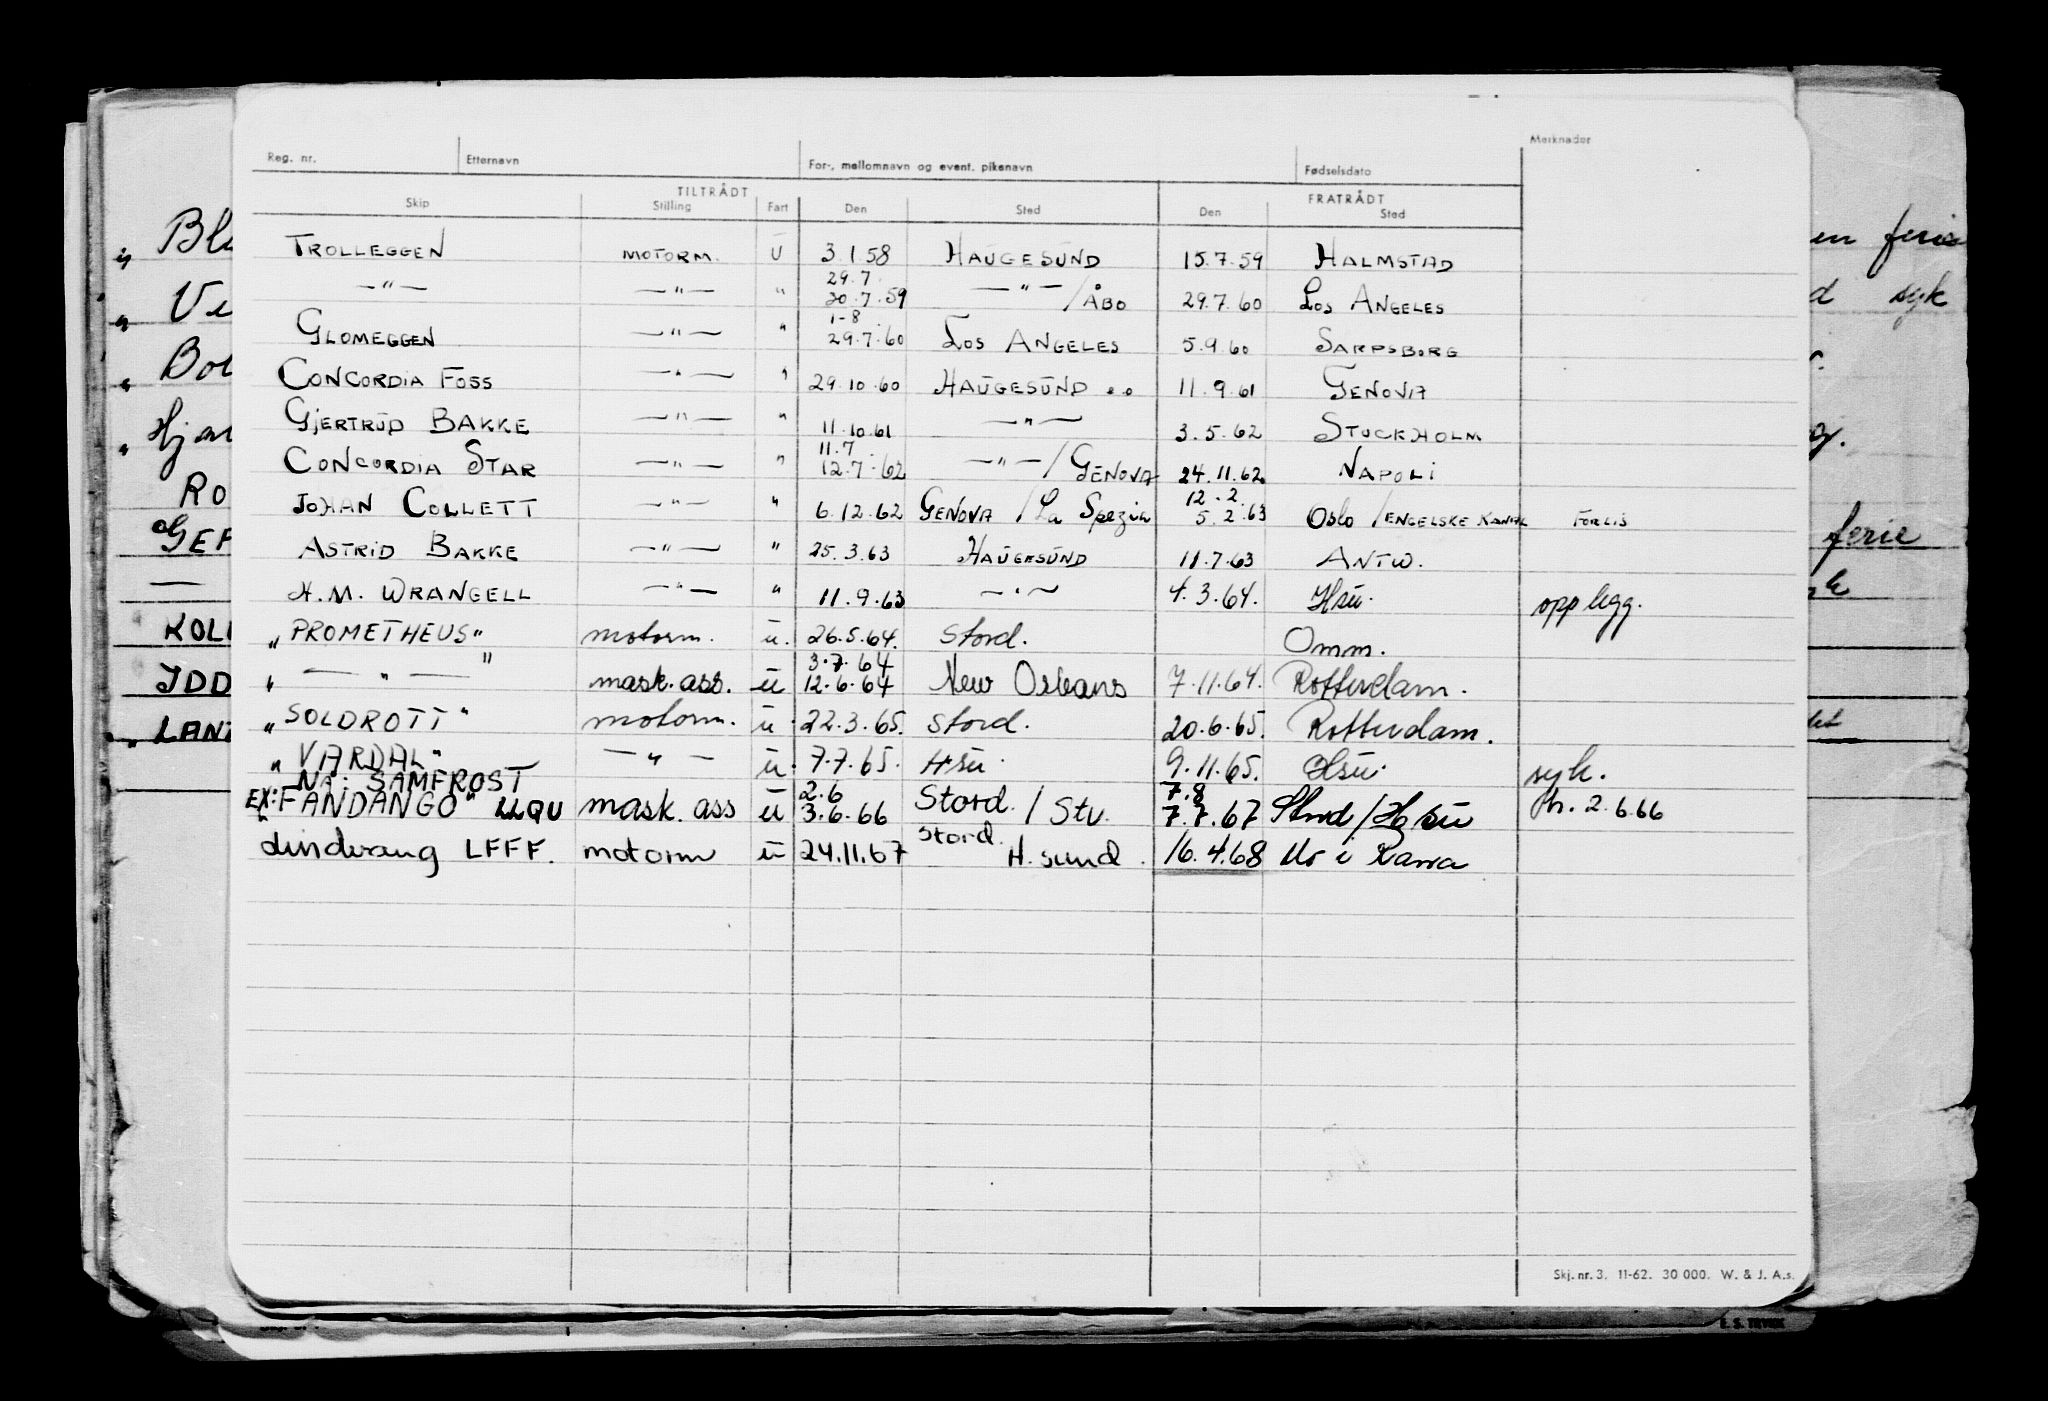 Merknader
Reg. nr. Etternavn For-, mellomnavn og event. pikenavn Fødselsdato
TILTRÅDT FRATRÅDT
Skip Stilling Fart Den Sted Den Sted
TROLLEGGEN MOTORM. U 3.1.58 HAUGESUND 15.7.59 HALMSTAD
29.7.
—"— —"— " 30.7.59 —"—/ÅBO 29.7.60 LOS ANGELES
1-8
GLOMEGGEN —"— " 29.7.60 LOS ANGELES 5.9.60 SARPSBORG
CONCORDIA FOSS —"— " 29.10.60 HAUGESUND 11.9.61 GENOVA
GJERTRUD BAKKE —"— " 11.10.61 —"— 3.5.62 STOCKHOLM
11.7.
CONCORDIA STAR —"— " 12.7.62 —"—/GENOVA 24.11.62 NAPOLI
12.2.
JOHAN COLLETT —"— " 6.12.62 GENOVA / La Spezia 5.2.63 Oslo / ENGELSKE KANAL FORLIS
ASTRID BAKKE —"— " 25.3.63 HAUGESUND 11.7.63 ANTW.
H.M. WRANGELL —"— " 11.9.63 —"— 4.3.64. Hsu. opplegg.
"PROMETHEUS" motorm. u. 26.5.64. Stord. Omm.
3.7.64
" —"— " mask.ass. u 12.6.64 New Orleans 7.11.64. Rotterdam.
"SOLDROTT" motorm. u. 22.3.65. Stord. 20.6.65. Rotterdam.
"VARDAL" —"— u. 7.7.65. Hsu. 9.11.65. Hsu. syk.
NÅ: SAMFROST 2.6 7.8
EX: FANDANGO" LLQU mask. ass u 3.6.66 Stord. / Stv. 7.7.67 Stord / Hsu 2.6.66
Stord.
Lindvang LFFF. motorm u 24.11.67 H.sund. 16.4.68 Mo i Rana
Skj. nr. 3. 11-62. 30 000. W. & J. A.s.
en ferie
syk
ferie
GEF
KOLL
IDD
LANT
E. S. TRYKK